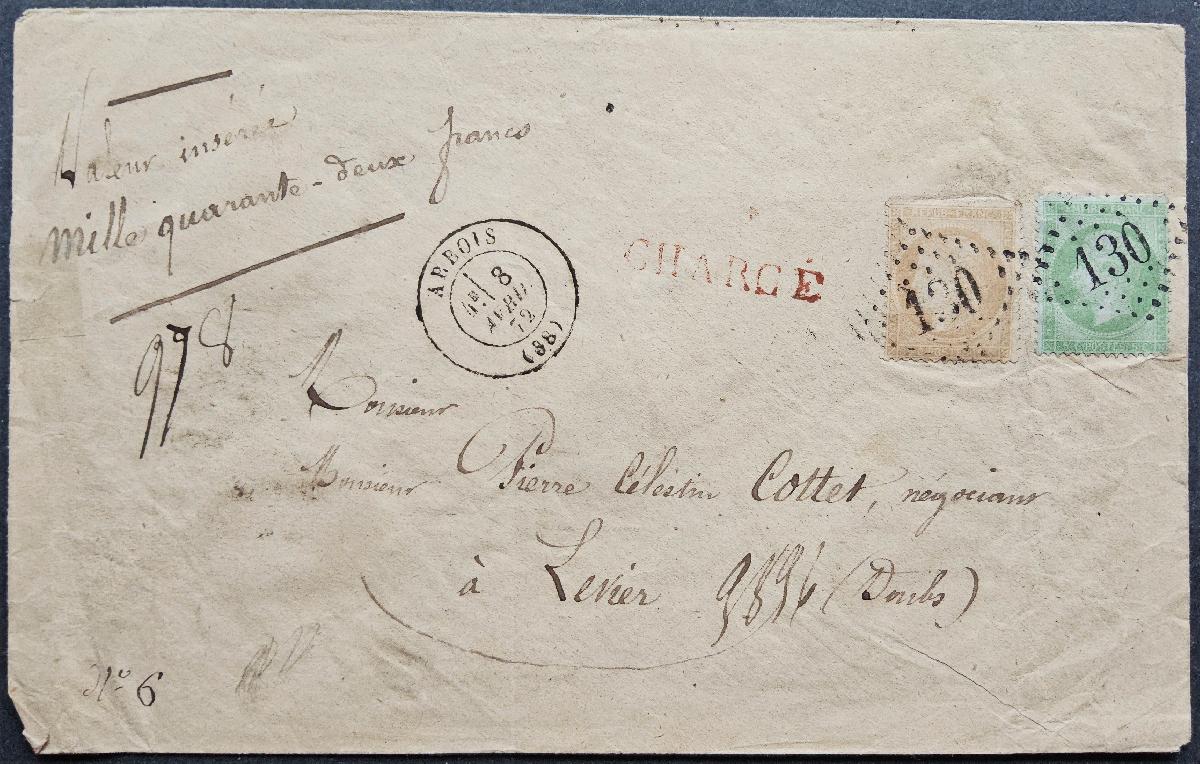 Valeur insérée
Mille quarante-deux francs
978
ARBOIS
8
AVRIL
72
(38)
CHARGÉ
REPUB·FRANC
130
130
POSTES
Monsieur
Monsieur Pierre Célestin Cottet, négociant
à Levier (Doubs)
N° 6